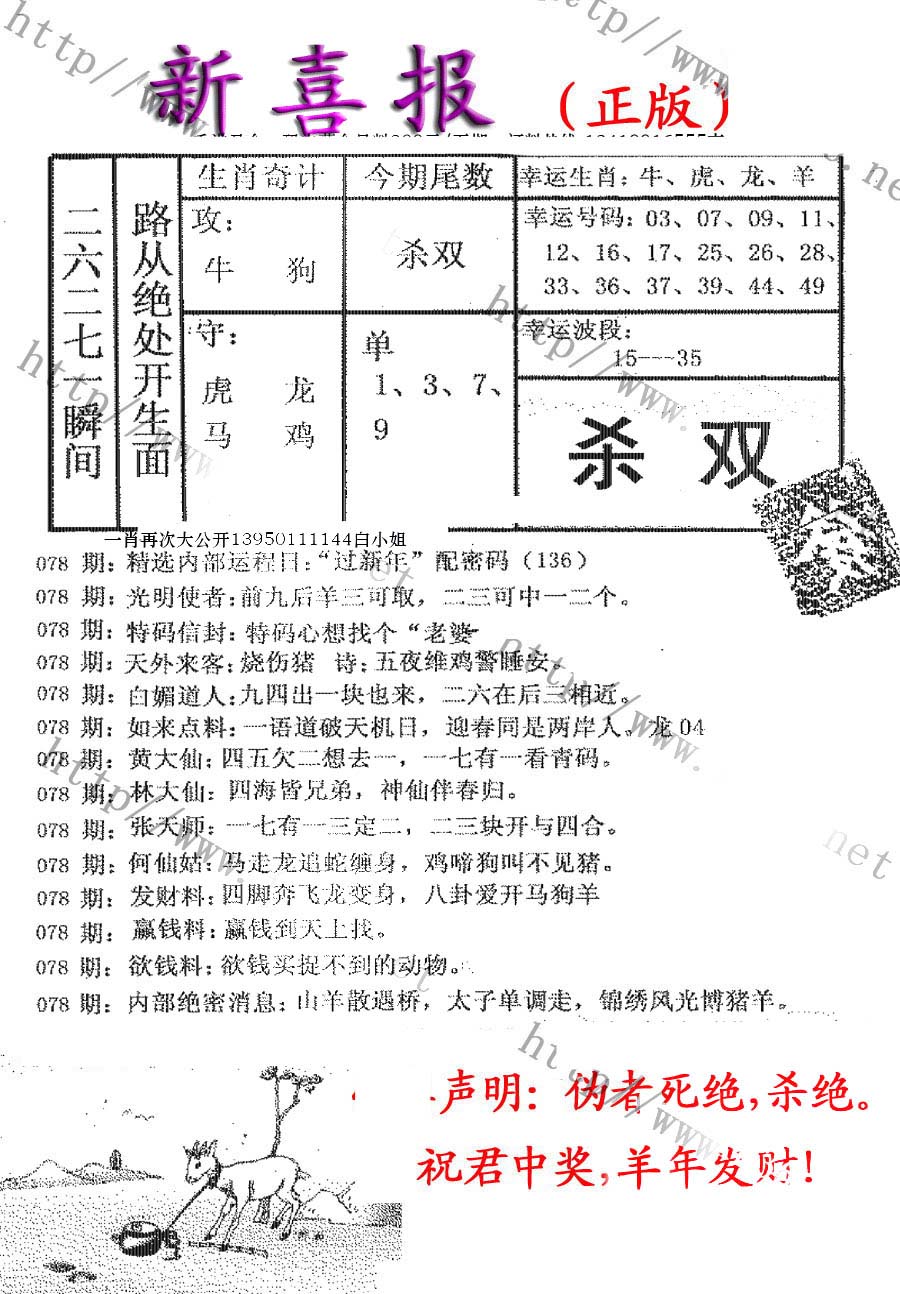 新喜报（正版）
二六二七一瞬间
路从绝处开生面
生肖奇计
攻：
牛 狗
守：
虎 龙
马 鸡
今期尾数
杀双
单
1、3、7、
9
幸运生肖：牛、虎、龙、羊
幸运号码：03、07、09、11、
12、16、17、25、26、28、
33、36、37、39、44、49
幸运波段：
15---35
杀双
一肖再次大公开13950111144白小姐
078 期：精选内部运程日：“过新年”配密码（136）
078 期：光明使者：前九后羊三可取，二三可中一二个。
078 期：特码信封：特码心想找个“老婆
078 期：天外来客：烧伤猪 诗：五夜维鸡警睡安。
078 期：白媚道人：九四出一块也来，二六在后三相近。
078 期：如来点料：一语道破天机日，迎春同是两岸人。龙 04
078 期：黄大仙：四五欠二想去一，一七有一看青码。
078 期：林大仙：四海皆兄弟，神仙伴春归。
078 期：张天师：一七有一三定二，二三块开与四合。
078 期：何仙姑：马走龙追蛇缠身，鸡啼狗叫不见猪。
078 期：发财料：四脚奔飞龙变身，八卦爱开马狗羊
078 期：赢钱料：赢钱到天上找。
078 期：欲钱料：欲钱买捉不到的动物。
078 期：内部绝密消息：山羊散遇桥，太子单调走，锦绣风光博猪羊。
声明：伪者死绝，杀绝。
祝君中奖，羊年发财！